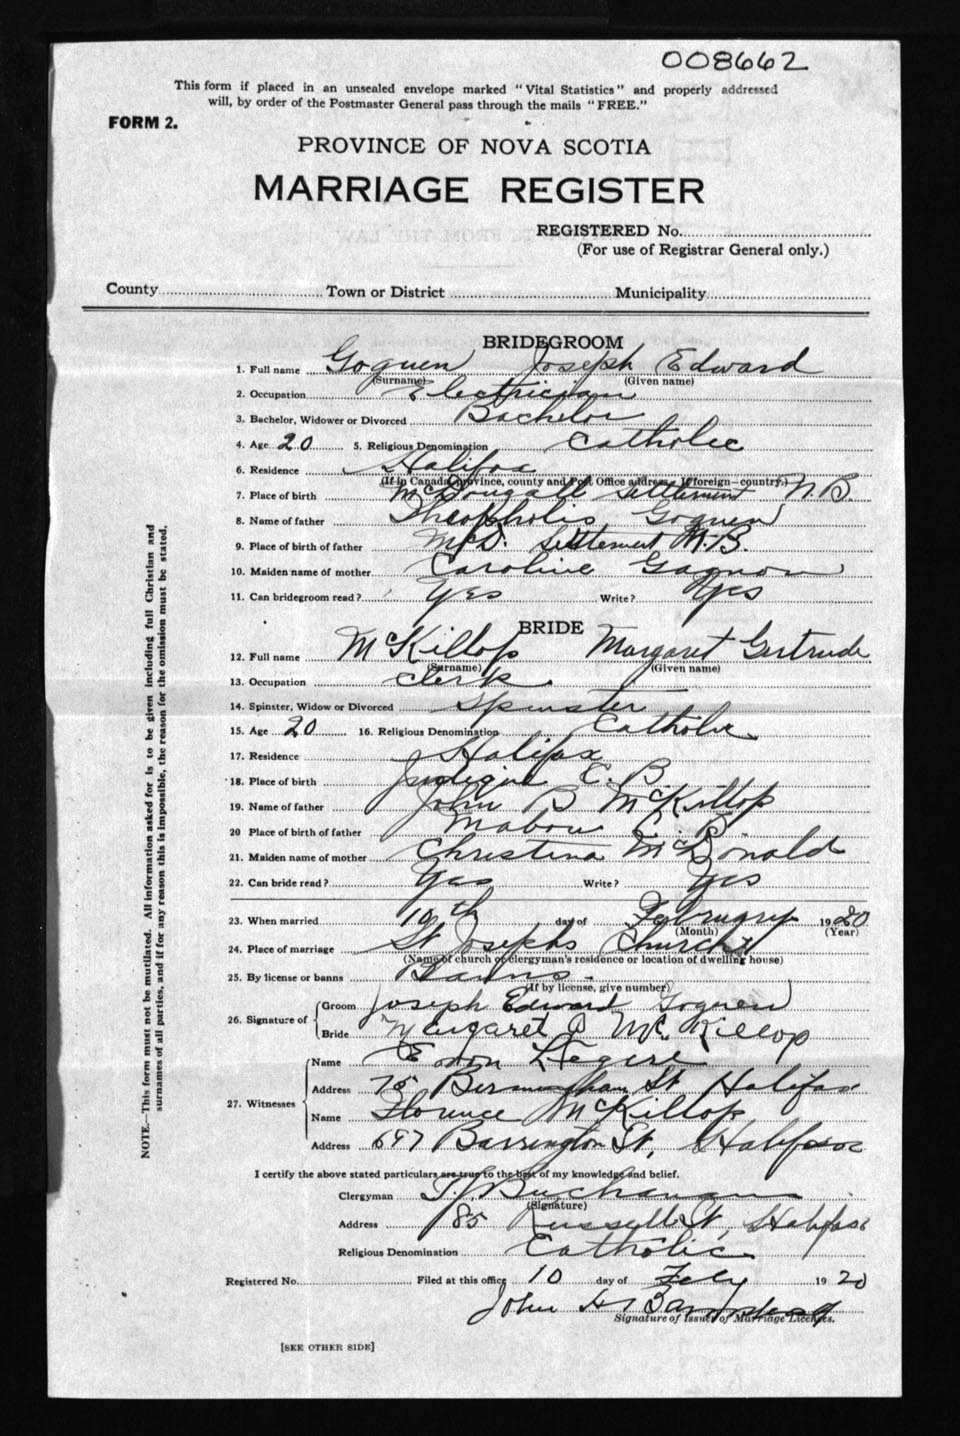 008662
This form if placed in an unsealed envelope marked "Vital Statistics" and properly addressed
will, by order of the Postmaster General pass through the mails "FREE."
FORM 2.
PROVINCE OF NOVA SCOTIA
MARRIAGE REGISTER
REGISTERED No.
(For use of Registrar General only.)
County Town or District Municipality
BRIDEGROOM
1. Full name Goguen Joseph Edward
(Surname) (Given name)
2. Occupation Electrician
3. Bachelor, Widower or Divorced Bachelor
4. Age 20 5. Religious Denomination Catholic
6. Residence Halifax
(If in Canada, province, county and Post Office address. If foreign—country.)
7. Place of birth McDougall Settlement N.B.
8. Name of father Theopholis Goguen
9. Place of father McD. Settlement N.B.
10. Maiden name of mother Caroline Gagnon
11. Can bridegroom read? Yes Write? Yes
BRIDE
12. Full name McKillop Margaret Gertrude
(Surname) (Given name)
13. Occupation Clerk
14. Spinster, Widow or Divorced Spinster
15. Age 20 16. Religious Denomination Catholic
17. Residence Halifax
18. Place of birth Judique C. B
19. Name of father John B McKillop
20 Place of birth of father Mabou C. B.
21. Maiden name of mother Christina McDonald
22. Can bride read? Yes Write? Yes
23. When married 10th day of February 1920
(Month) (Year)
24. Place of marriage St Josephs Church
(Name of church or clergyman's residence or location of dwelling house)
25. By license or banns Banns.
(If by license, give number)
26. Signature of Groom Joseph Edward Goguen
Bride Margaret G McKillop
27. Witnesses
Name Legere
Address 75 Birmingham St Halifax
Name Florence McKillop
Address 697 Barrington St, Halifax
I certify the above stated particulars are true to the best of my knowledge and belief.
Clergyman Buchanan
(Signature)
Address 185 Russell St, Halifax
Religious Denomination Catholic
Registered No. Filed at this office 10 day of Feby 1920
John H Barnstead
Signature of Issuer of Marriage Licenses.
[SEE OTHER SIDE]
NOTE.—This form must not be mutilated. All information asked for is to be given including full Christian and
surnames of all parties, and if for any reason this is impossible, the reason for the omission must be stated.